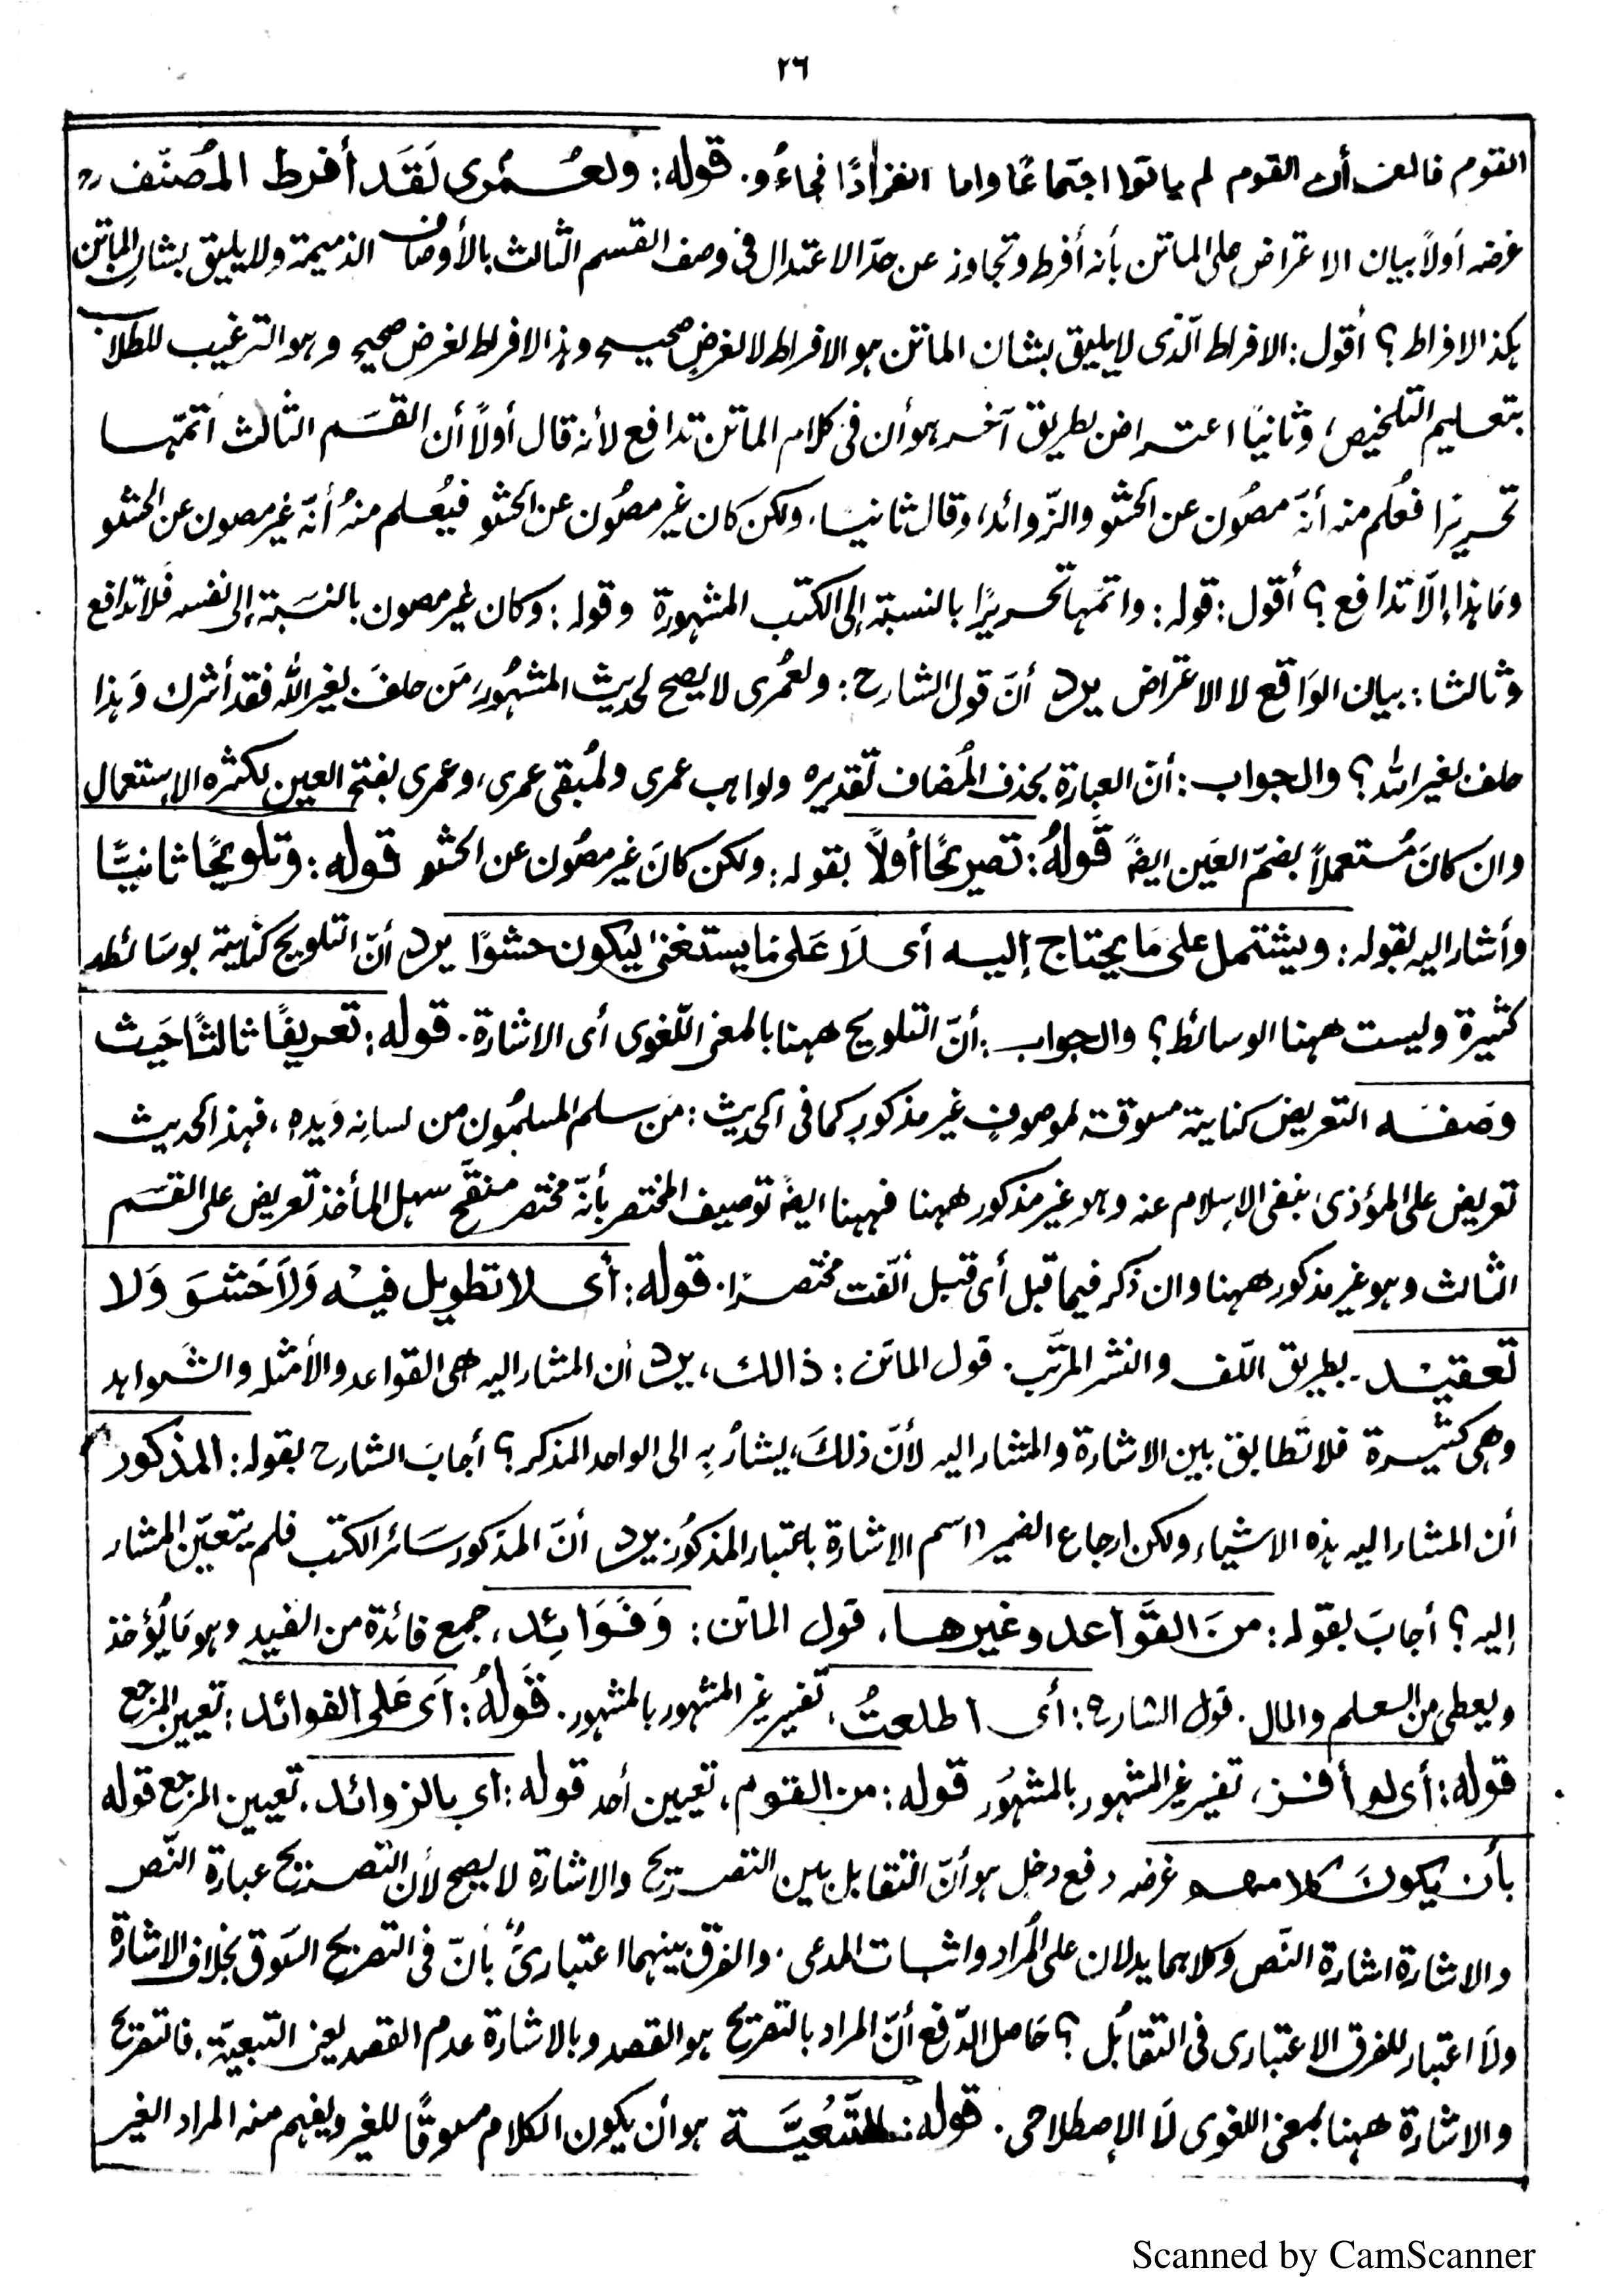 ٢٦
القوم فالمعنى أن القوم لم ياتوا اجتماعًا واما انفرادًا فجاءُو. قوله: ولعُمْرى لَقَد أفرط المُصنّف
غرضه أولاً بيان الاعتراض على الماتن بأنه أفرط وتجاوز عن حدّ الاعتدال فى وصف القسم الثالث بالأوصاف الذميمة ولا يليق بشان الماتن
هكذا الافراط؟ أقول: الافراط الّذى لا يليق بشان الماتن هو الافراط لا لغرضٍ صحيح وهذا الافراط لغرض صحيح وهو الترغيب للطلاب
بتعليم التلخيص؛ وثانيًا اعتراض بطريق آخر هو أن فى كلام الماتن تدافع لأنه قال أولاً أن القسَم الثالث أتمّها
تحريرًا فعُلم منه أنّه مصُون عن الحشو والزّوائد؛ وقال ثانيًا، ولكن كان غير مصُون عن الحشو فيُعلم منهُ أنّه غير مصون عن الحشو
ومَا هذا إلّا تدافع؟ أقول: قوله: واتمّها تحريرًا بالنسبة إلى الكتب المشهورة وقوله: وكان غير مصون بالنسَبة إلى نفسه فلا تدافع
وثالثا: بيان الوَاقع لا الاعتراض يرد أنّ قول الشارح: ولعمُرى لا يصح لحديث المشهُور مَن حلفَ بغير الله فقد أشرك وَهذا
حلف بغير الله؟ والجواب: أن العبارة بحذف المُضاف تقديره ولواهب عمرى ولمُبقى عمرى، وعمرى بفتح العين لكثرة الاستعمال
وان كانَ مُستعملاً بضمّ العَين ايضًا قَولهُ: تصريحًا أولاً بقوله: ولكن كانَ غير مصُون عن الحشو قوله: وتلويحًا ثانيًا
وأشار اليه بقوله: ويشتمل على مَا يحتاج إليه أى لَا عَلى مَا يستغنى ليكون حشوًا يرد أنّ التلويح كناية بوسَائط
كثيرة وليست ههنا الوسائط؟ والجواب: أنّ التلويح ههنا بالمعنى اللّغوى أى الاشارة. قوله: تعريضًا ثالثًا حَيث
وصَفَه التعريض كناية مسوقة لموصوفٍ غير مذكورٍ كما فى الحديث: مَن سلم المسلمُون من لسانه وَيدهِ، فهذا الحديث
تعريض على المؤذى بنفى الاسلام عنه وهو غير مذكور ههنا فههنا ايضًا توصيف المختصر بأنّه مختصر منقّح سهل المأخذ تعريض على القسَم
الثالث وهو غير مذكور ههنا وان ذكر فيما قبل أى قبل ألّفت مختصرًا. قوله: أى لا تطويل فيْه وَلاَ حَشوَ وَلا
تعقيْد. بطريق اللّف والنشر المرتّب. قول الماتن: ذالك، يرد أن المشار اليه هى القواعد والأمثلة والشّواهد
وهى كثيرة فلا تطابق بين الاشارة والمشار اليه لأنّ ذلكَ يشارُ بِه الى الواحد المذكر؟ أجابَ الشارح بقوله: المذكور
أن المشار اليه هذه الاشياء ولكن ارجاع الضمير / اسم الاشارة باعتبار المذكُور يرد أنّ المذكور سَائر الكتب فلم يتعيّن المشار
إليه؟ أجابَ بقوله: منَ القَواعد وغيرها، قول الماتن: وَفَوَائِد، جمع فائدة من الفيد وهو مَا يُؤخذ
ويعطى من العلم والمال. قول الشارح: أى اطلعتُ، تفسير غير المشهور بالمشهور. قَولهُ: أى عَلى الفوائد: تعيين المرجع
قوله: أى لم أفز، تفسير غير المشهور بالمشهُور قوله: من القوم، تعيين أحد قوله: أى بالزوائد، تعيين المرجع قوله
بأن يكونَ كلامهم غرضه دفع دخل هو أنّ التقابل بين التصريح والاشارة لا يصح لأن التصريح عبارة النّص
والاشارة اشارة النّص وكلاهما يدلان على المُراد واثبات المدعى. والفرق بينهما اعتبارىٌّ بأنّ فى التصريح السّوق بخلاف الاشارة
ولَا اعتبار للفرق الاعتبارى فى التقابُل؟ حَاصل الدّفع أنّ المراد بالتصريح هو القصد وبالاشارة عدم القصد يعنى التبعيّة، فالتصريح
والاشارة ههنا بمعنى اللغوى لَا الإصطلاحى. قوله: للتّبعيَّة هو أن يكون الكلام مسوقًا للغير ويفهم منه المراد الغير
Scanned by CamScanner